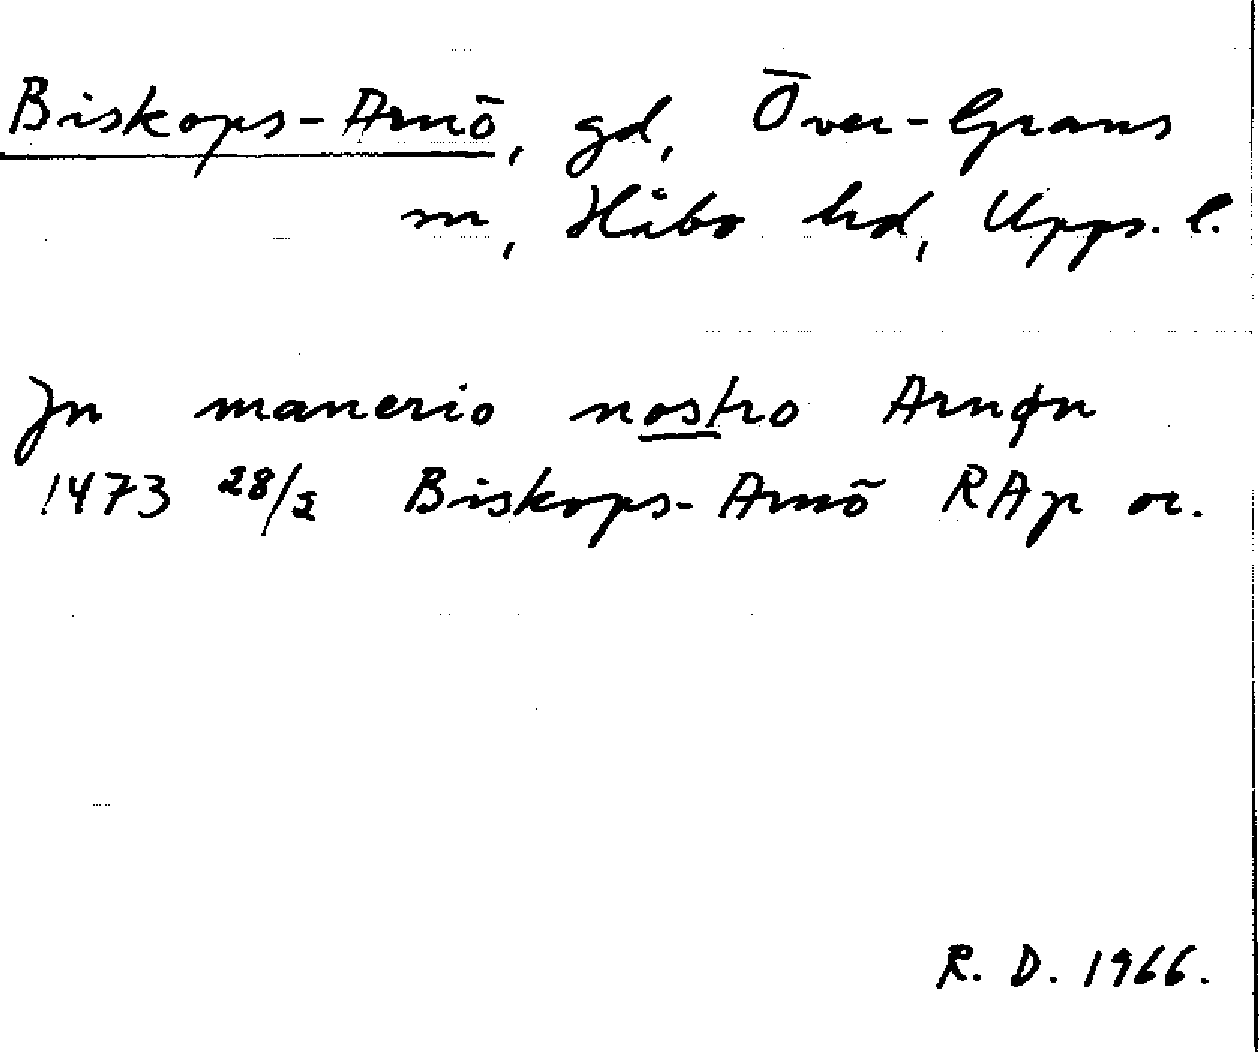 Biskops-Arnö, gd, Över-Grans
sn, Håbo hd, Upps. l.
Jn manerio nostro Arnøn
1473 28/2 Biskops-Arnö RAp or.
R. D. 1966.